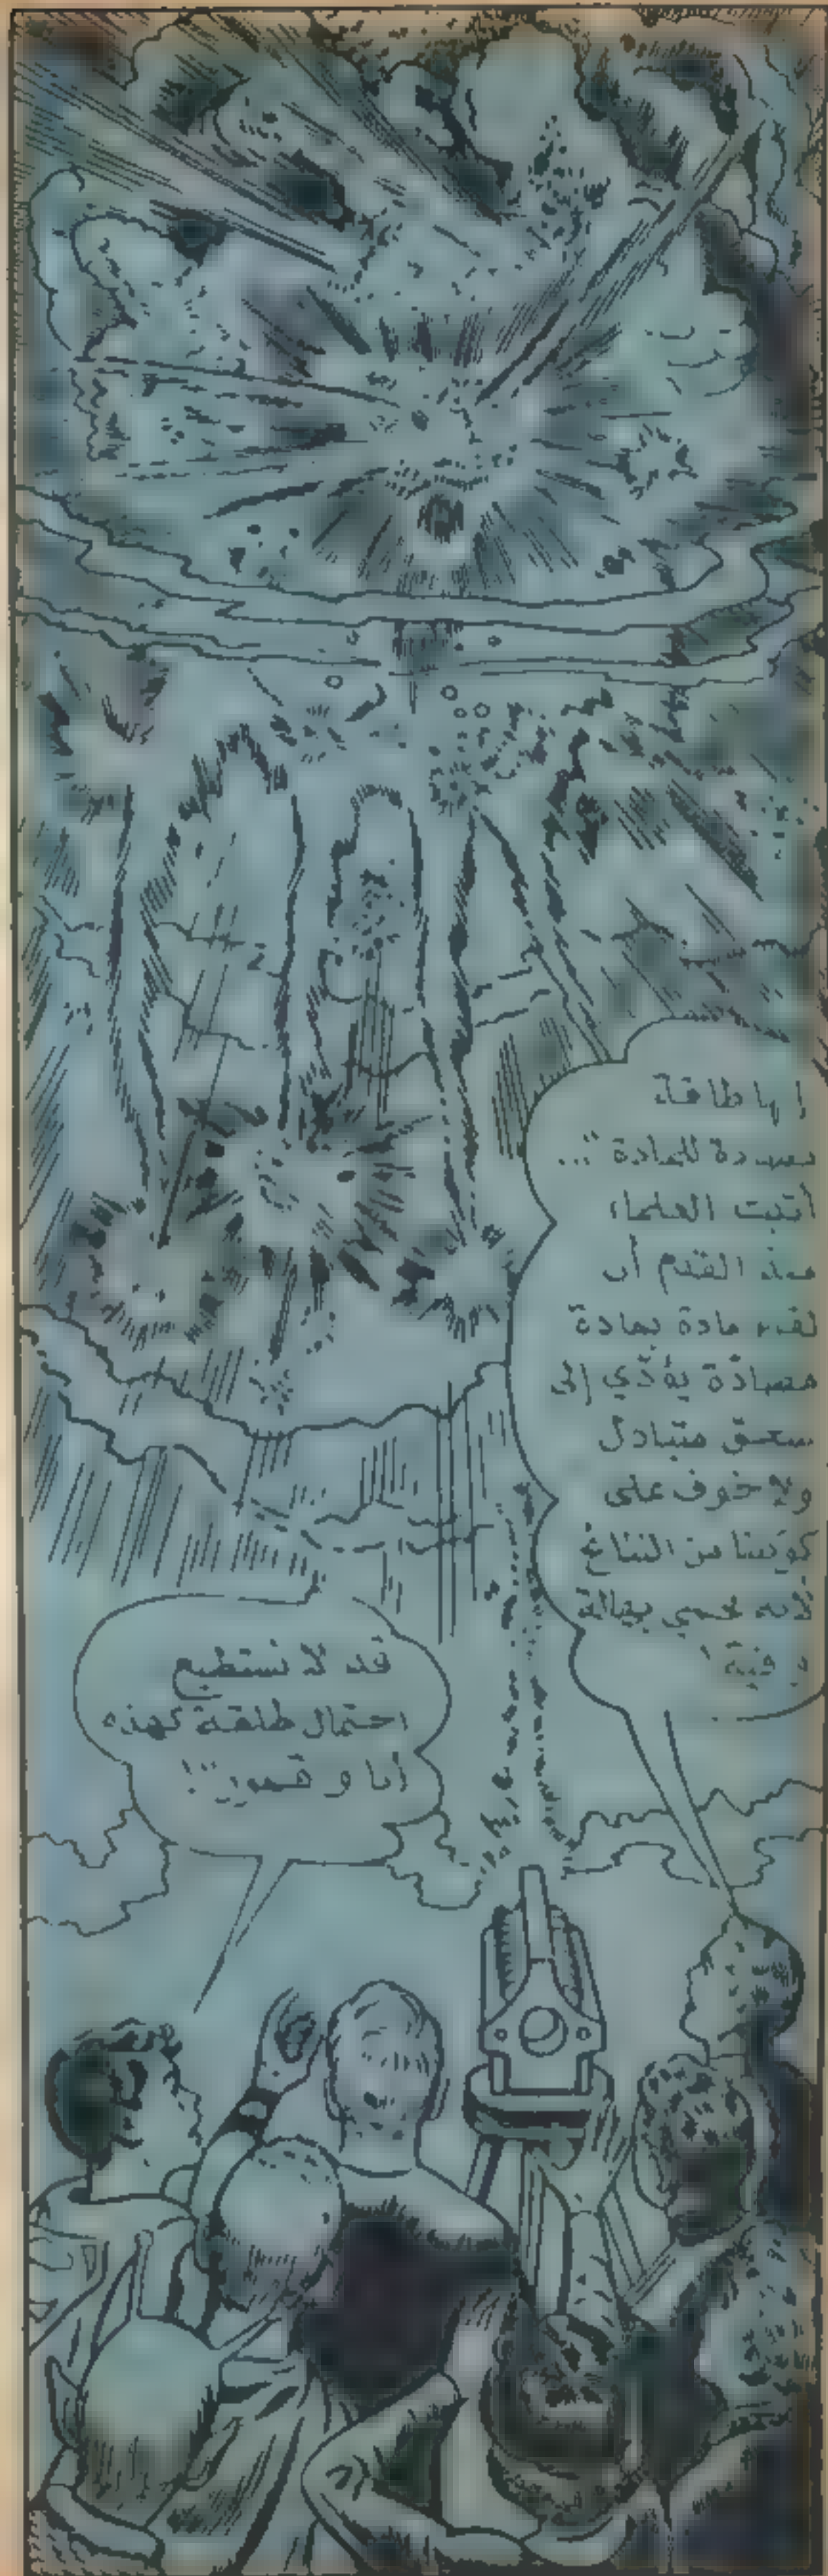 إنها طاقة
مضادة للمادة"...
أثبت العلماء
منذ القدم أن
لقاء مادة بمادة
مضادّة يؤدّي إلى
سحق متبادل
ولا خوف على
كوكبنا من
لأنه محمي بهالة
قد لا نستطيع
احتمال طلقة كهذه
أنا و